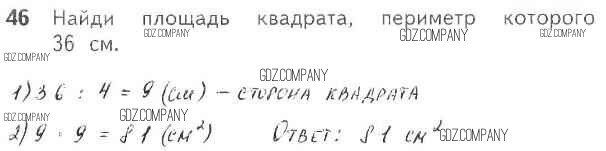 46 Найди площадь квадрата, периметр которого
GDZ.COMPANY GDZ.COMPANY
36 см.
GDZ.COMPANY
GDZ.COMPANY
1) 36 : 4 = 9 (см) – сторона квадрата
GDZ.COMPANY
2) 9 · 9 = 81 (см²) Ответ: 81 см²
GDZ.COMPANY
GDZ.COMPANY